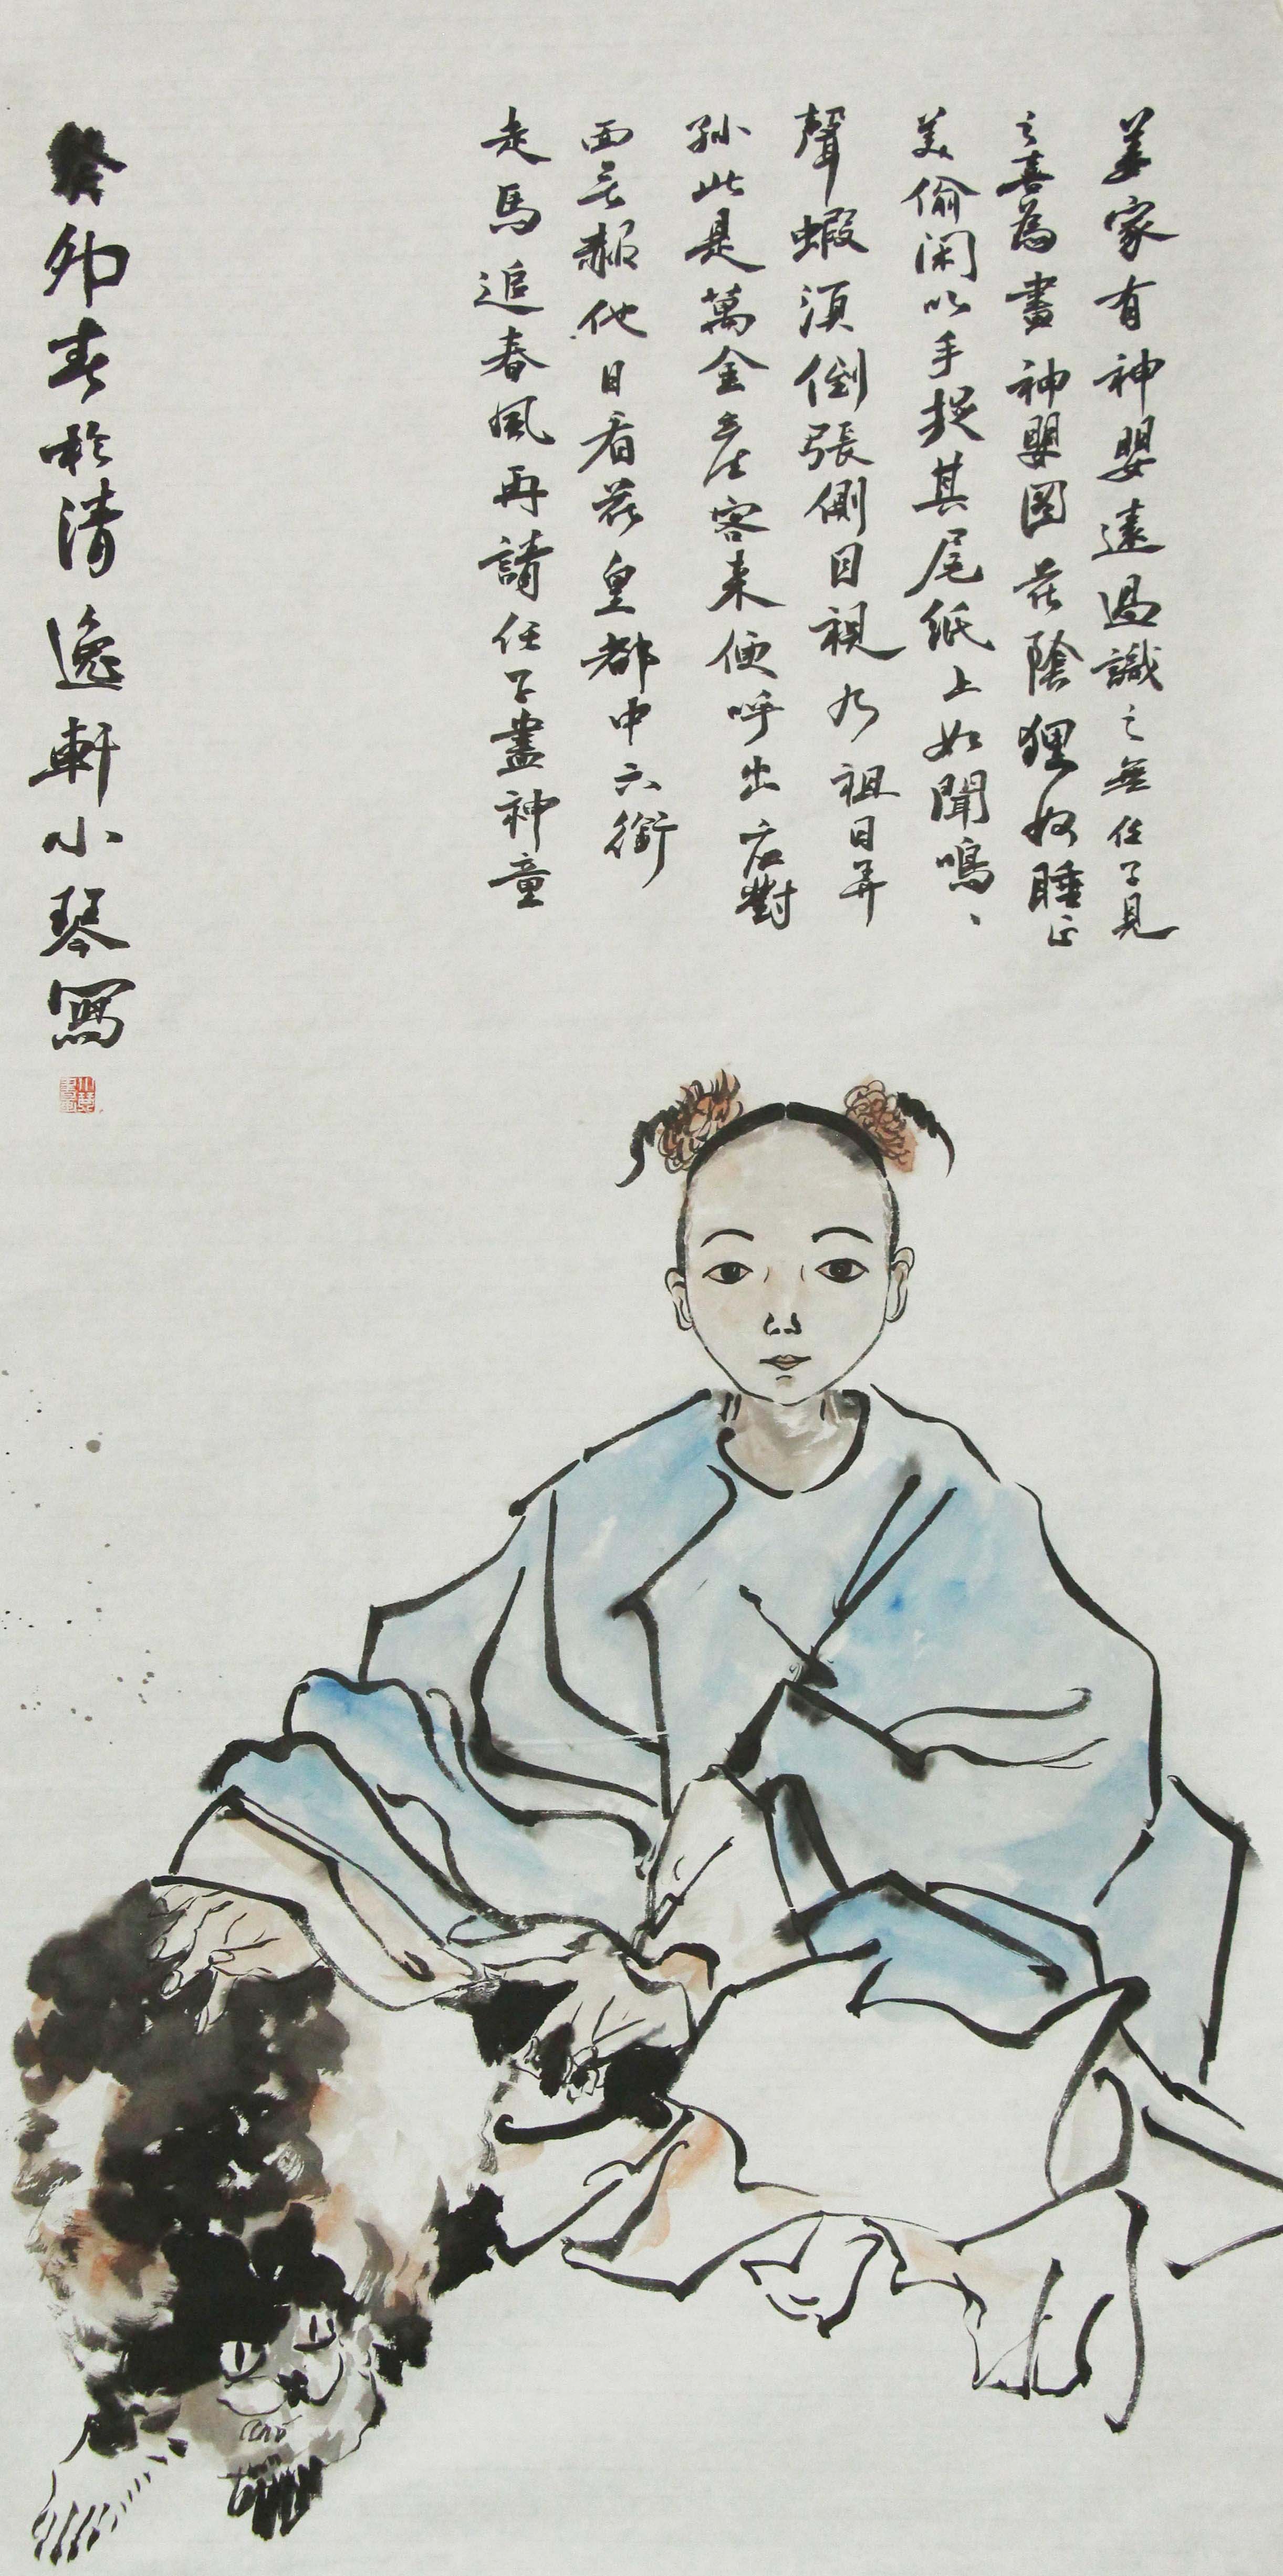 姜家有神嬰遠過識之無任子見
之喜為畫神嬰圖花陰狸奴睡正
美偷閑以手捉其尾紙上如聞鳴、
聲蝦須倒張側目視乃祖日弄
孫此是萬金產客来便呼出應對
而无赧他日看花皇都中六街
走馬追春風再請任子畫神童
癸卯春於清逸軒小琴寫